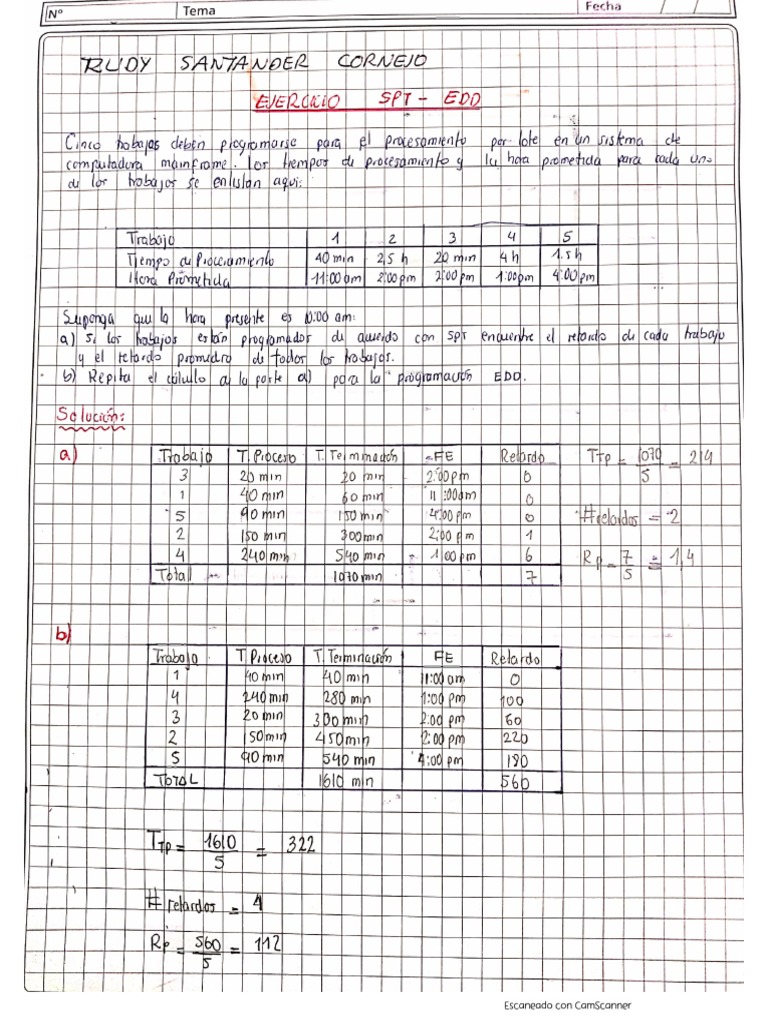 Nº Tema Fecha / /
RUDY SANTANDER CORNEJO
EJERCICIO SPT - EDD
Cinco trabajos deben programarse para el procesamiento por lote en un sistema de
computadora mainframe. Los tiempos de procesamiento y la hora prometida para cada uno
de los trabajos se enlistan aquí:
Trabajo 1 2 3 4 5
Tiempo de Procesamiento 40 min 2,5 h 20 min 4 h 1.5 h
Hora Prometida 11:00 am 2:00 pm 2:00 pm 1:00 pm 4:00 pm
Suponga que la hora presente es 10:00 am:
a) Si los trabajos están programados de acuerdo con SPT encuentre el retardo de cada trabajo
y el retardo promedio de todos los trabajos.
b) Repita el cálculo a la parte a) para la programación EDD.
Solución:
a)
Trabajo T. Proceso T. Terminación FE Retardo
3 20 min 20 min 2:00 pm 0
1 40 min 60 min 11:00am 0
5 90 min 150 min 4:00 pm 0
2 150 min 300min 2:00 pm 1
4 240 min 540 min 1:00 pm 6
Total 1070 min 7
TTP = 1070/5 = 214
#retardos = 2
Rp = 7/5 = 1,4
b)
Trabajo T Proceso T. Terminación FE Retardo
1 40 min 40 min 11:00 am 0
4 240 min 280 min 1:00 pm 100
3 20 min 300 min 2:00 pm 60
2 150 min 450 min 2:00 pm 220
5 90 min 540 min 4:00 pm 180
TOTAL 1610 min 560
TTP = 1610/5 = 322
# retardos = 4
Rp = 560/5 = 112
Escaneado con CamScanner